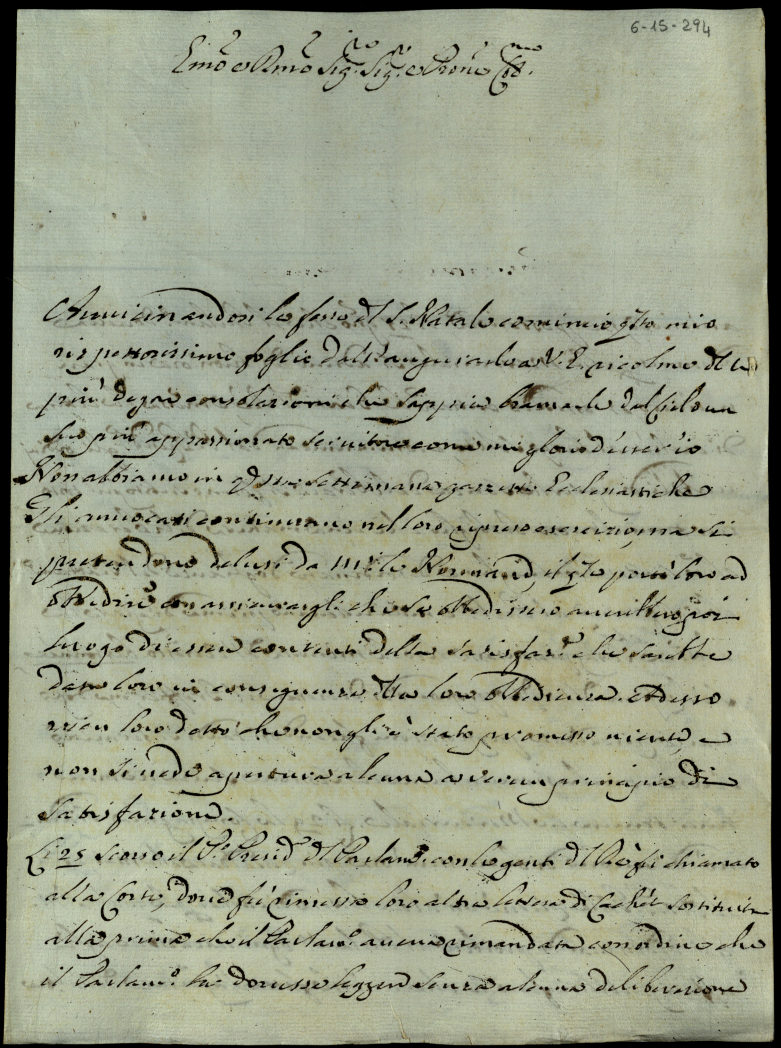 6-15-294
Emo e Rmo Sig. Sig. e Prone Col.mo
Avvicinandosi le feste del S. Natale comincio qsto mio
rispettosissimo foglio dall'augurarle a V. E. ricolme delle
più degne consolazioni che sappia bramarle dal Cielo un
suo più appassionato servitore come mi glorio d'esser io
Non abbiamo in qsta settimana gazzette Ecclesiastiche
Gli avvocati continuano nel loro ripreso esercizio, ma si
pretendono delusi da Mr le Normand, il qle portò loro ad
obbedire con assicurargli che se obbedissero avrebbero poi
luogo di essere contenti della satisfaz.e che sarebbe
data loro in conseguenza della loro obbedienza. Adesso
vien loro detto che non gli è stato promesso niente, e
non si vede apertura alcuna a verun principio di
satisfazione.
Li 25 scorso il P.o Presid.e del Parlam.o con le genti del Rè fù chiamato
alla Corte, dove fù rimessa loro altra lettera di Cachét sostituita
alla prima che il Parlam.o aveva rimandata con ordine che
il Parlam.o la dovesse leggere senza alcuna deliberazione